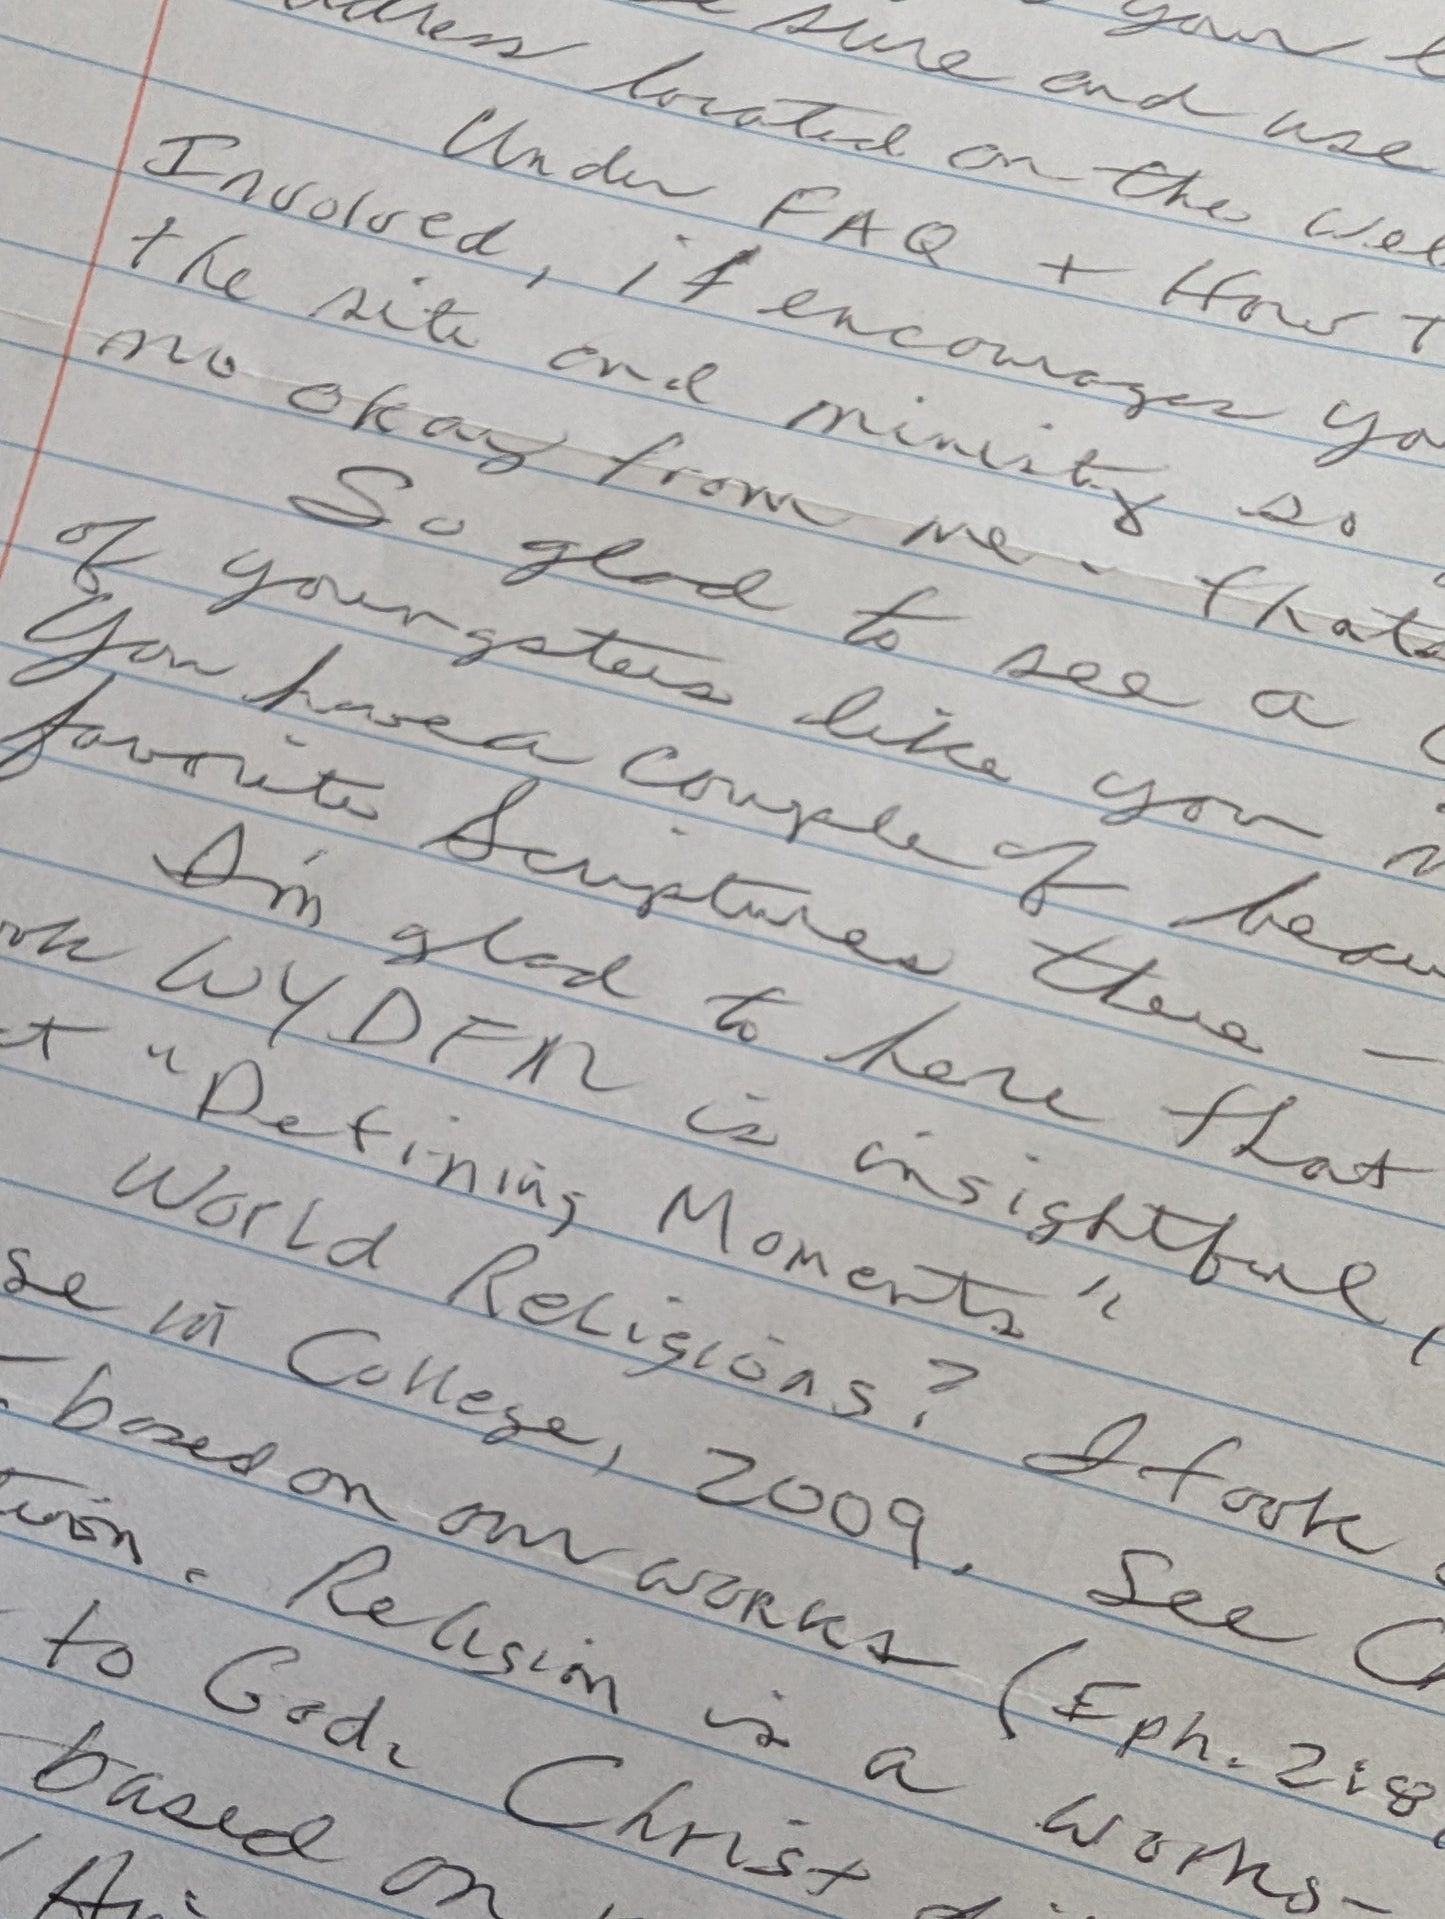 your
sure and use
address located on the
Under FAQ + How T
Involved, it encourages yo
the site and ministry so
no okay from me. Thats
So glad to see a
of youngsters like you
You have a couple of beau
favorite Scriptures there –
I'm glad to here that
ok WYDFR is insightful,
t "Defining Moments"
World Religions? I took
se in College, 2009. See C
- based on our works (Eph. 2:8,
tion. Religion is a works-
to God. Christ
based on